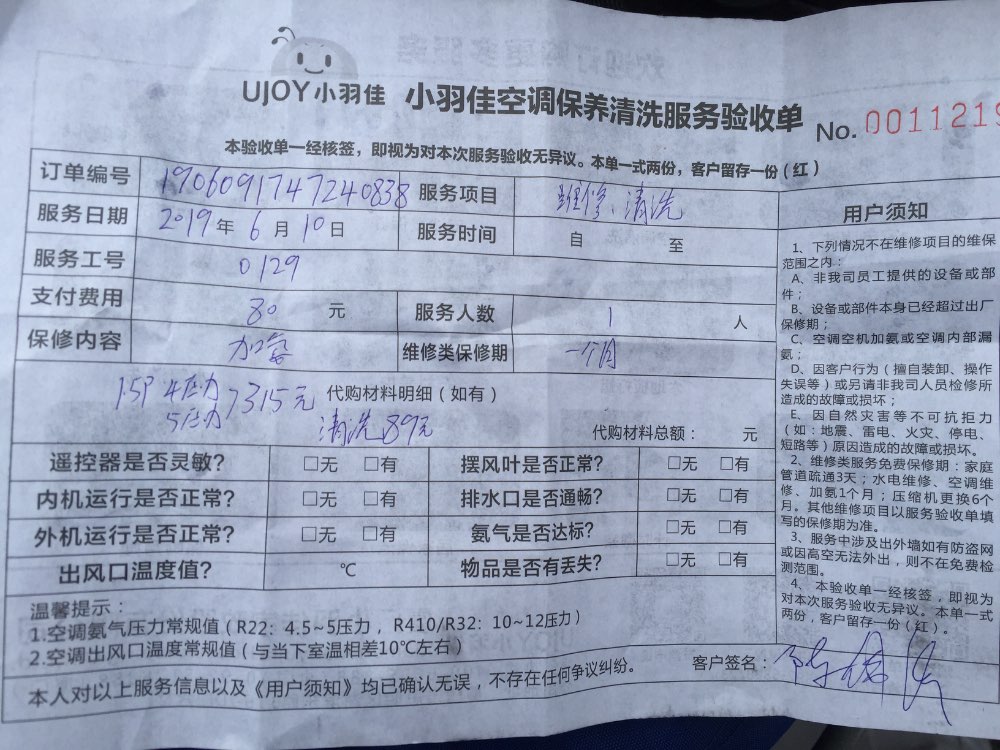 UJOY小羽佳 小羽佳空调保养清洗服务验收单 No. 0011219
本验收单一经核签，即视为对本次服务验收无异议。本单一式两份，客户留存一份（红）
订单编号 1906091747240838 服务项目 维修、清洗
服务日期 2019年6月10日 服务时间 自 至
服务工号 0129
支付费用 80 元 服务人数 1 人
保修内容 加氨 维修类保修期 一个月
1.5P 4压力 5压力 7315元 代购材料明细（如有）
清洗89元 代购材料总额： 元
遥控器是否灵敏？ □无 □有 摆风叶是否正常？ □无 □有
内机运行是否正常？ □无 □有 排水口是否通畅？ □无 □有
外机运行是否正常？ □无 □有 氨气是否达标？ □无 □有
出风口温度值？ ℃ 物品是否有丢失？ □无 □有
温馨提示：
1.空调氨气压力常规值（R22：4.5~5压力，R410/R32：10~12压力）
2.空调出风口温度常规值（与当下室温相差10℃左右）
本人对以上服务信息以及《用户须知》均已确认无误，不存在任何争议纠纷。
客户签名：
用户须知
1、下列情况不在维修项目的维保
范围之内：
A、非我司员工提供的设备或部
件；
B、设备或部件本身已经超过出厂
保修期；
C、空调空机加氨或空调内部漏
氨；
D、因客户行为（擅自装卸、操作
失误等）或另请非我司人员检修所
造成的故障或损坏；
E、因自然灾害等不可抗拒力
（如：地震、雷电、火灾、停电、
短路等）原因造成的故障或损坏。
2、维修类服务免费保修期：家庭
管道疏通3天；水电维修、空调维
修、加氨1个月；压缩机更换6个
月。其他维修项目以服务验收单填
写的保修期为准。
3、服务中涉及出外墙如有防盗网
或因高空无法外出，则不在免费检
测范围。
4、本验收单一经核签，即视为
对本次服务验收无异议。本单一式
两份，客户留存一份（红）。